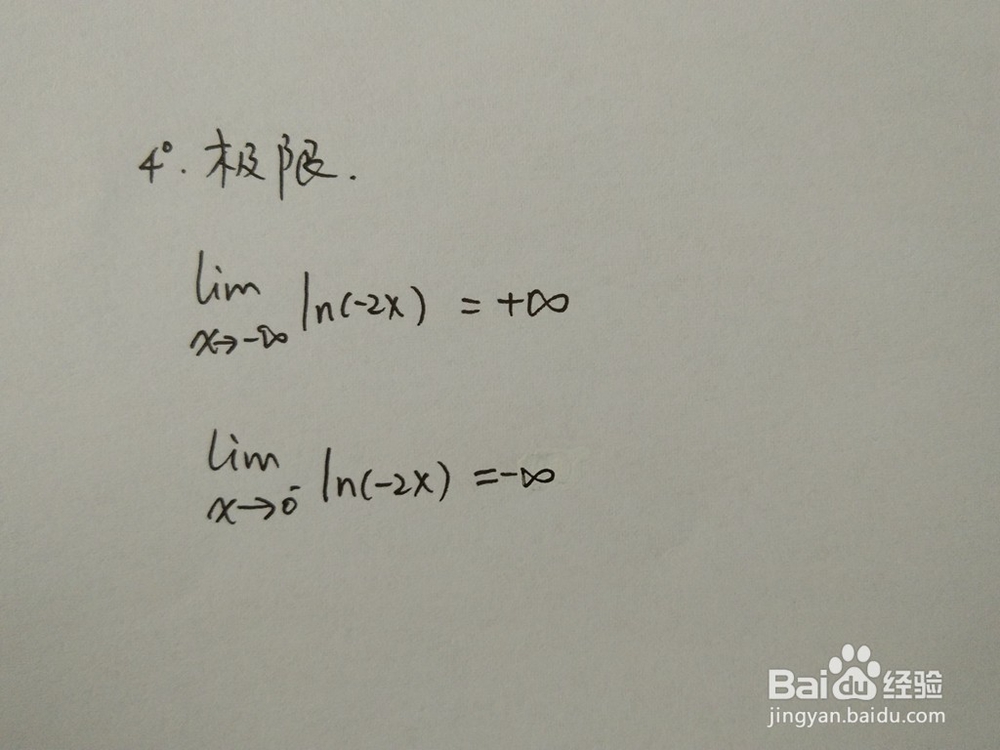 4°. 极限.
lim ln(-2x) = +∞
x→-∞
lim ln(-2x) = -∞
x→0⁻
Baidu 经验
jingyan.baidu.com